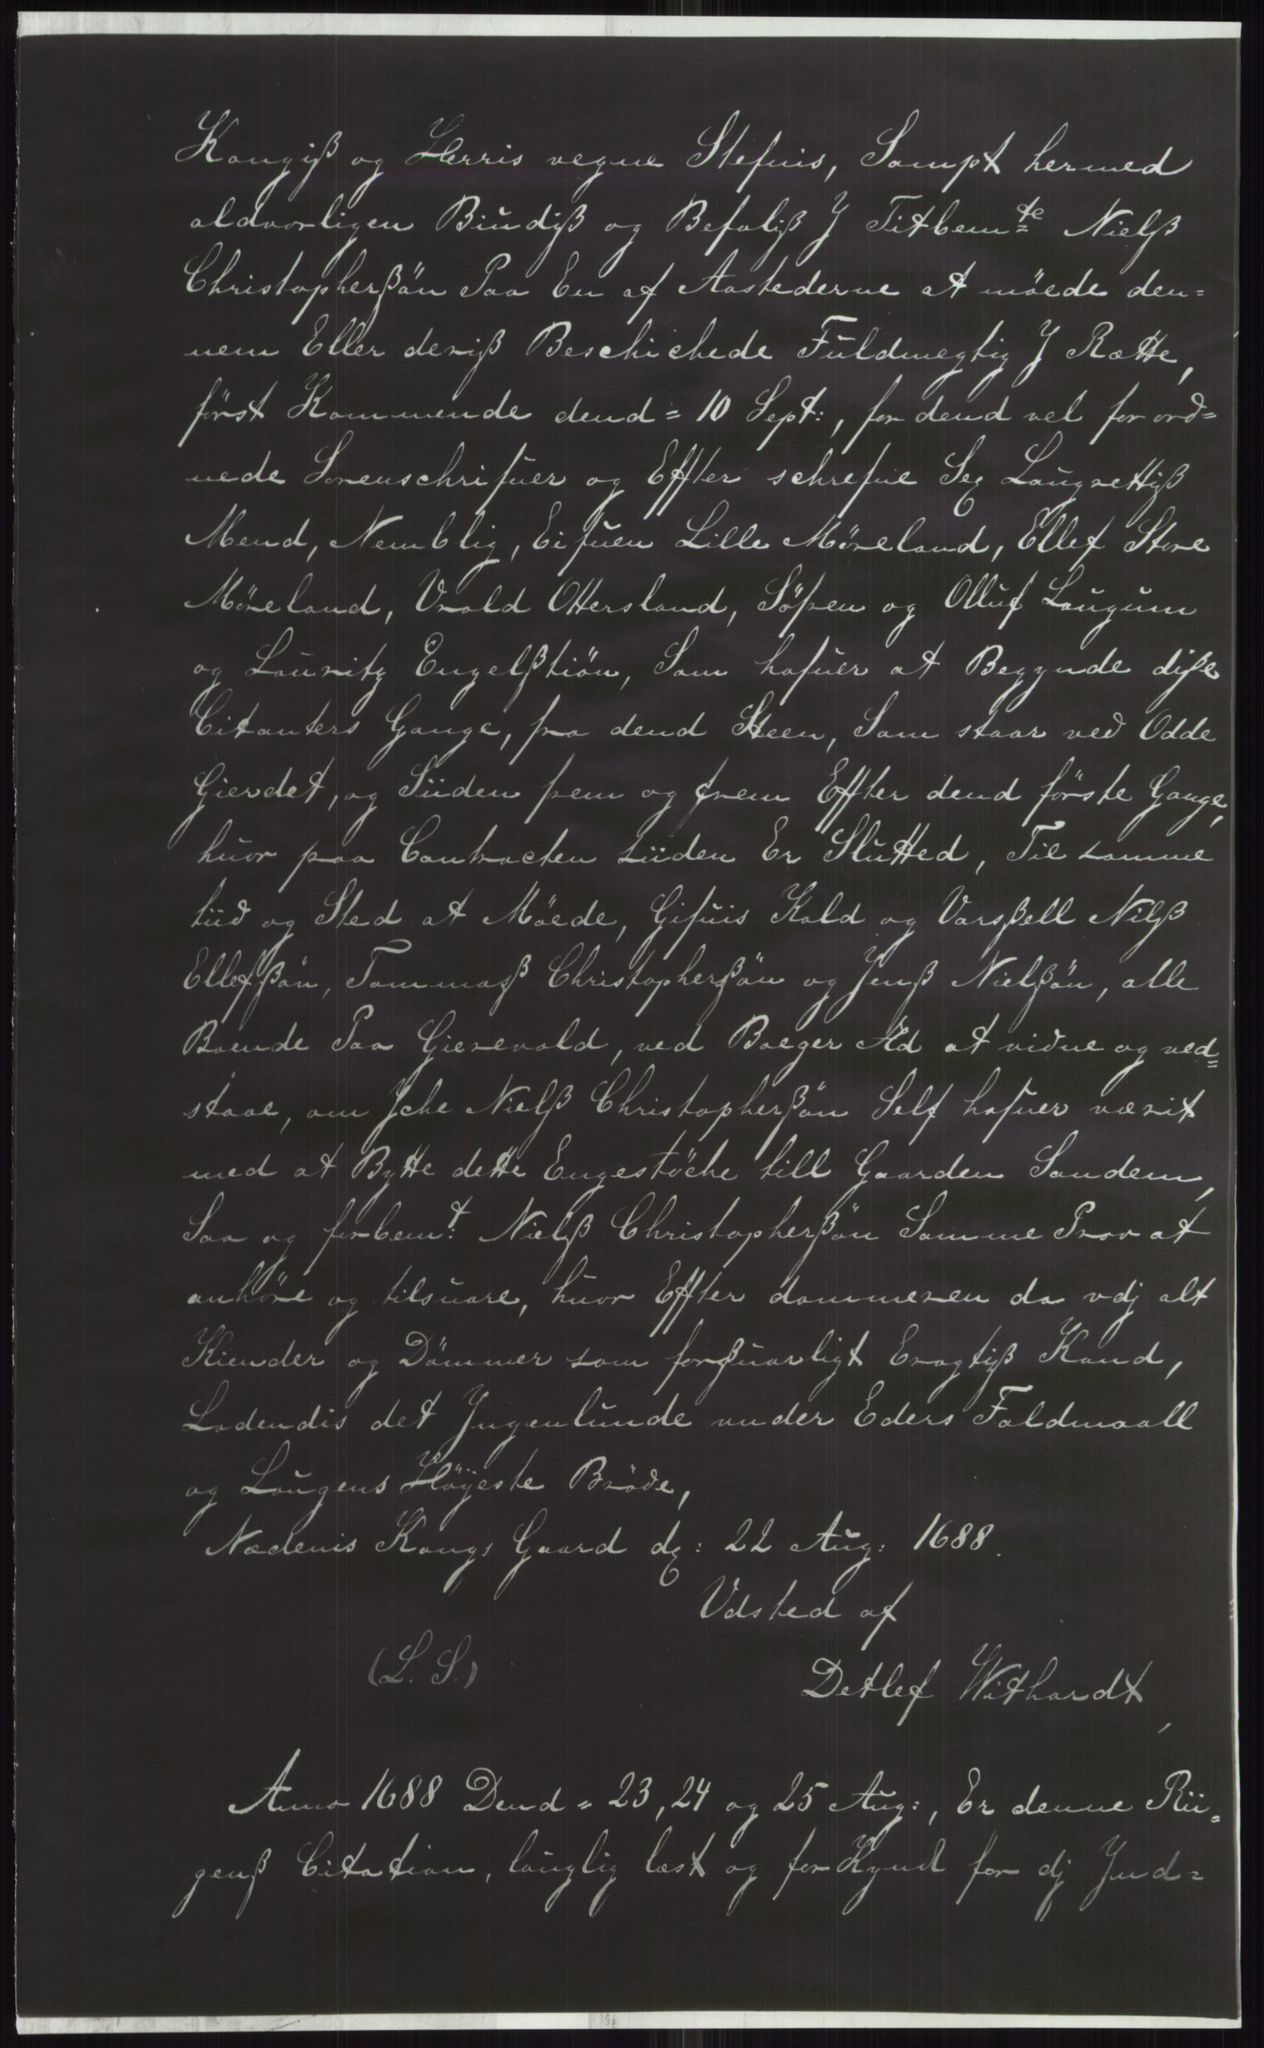 Kongiß og Herris vegne Stefnis, Sampt hermed
aldvorligen Biudiß og Befaliß J Titbem<sup>te</sup> Nielß
Christopherßön Paa En af Aastederne at möede den=
nem Eller deriß Beschichede Fuldmegtig J Rætte,
först Kommende dend= 10 Sept:, for dend vel for ord=
nede Sorenschrifuer og Effter schrefne Sex Laugrettiß
Mend, Nemblig, Eifuen Lille Möreland, Ellef Store
Möreland, Vrald Ottersland, Söfren og Olluf Laugum
og Lauritz Engelßtiön, Som hafuer at Begynde diße
Citanters Gange, fra dend Steen, Som staar ved Odde
Gierdet, og Siiden frem og frem Effter dend förste Gange,
huor paa Contracten siiden Er Slutted, Til samme
tiid og Sted at Möede, Gifuis Kald og Varßell Nilß
Ellefßön, Tommaß Christopherßön og Jenß Nielßön, alle
Boende Paa Gierevald, ved Boeger Æd at vidne og ved=
staae, om Jche Nielß Christopherßön Self hafuer værit
med at Bytte dette Engestöche till Gaarden Sandem,
Saa og forbem<sup>t</sup>: Nielß Christopherßön Samme Prov at
anhöre og tilsuare, huor Effter dommeren da vdj alt
Kiender og Dömmer som forßuarligt Eragtiß Kand,
Ladendis det Jngenlunde under Eders Faldmaall
og Laugens Höyeste Bröde,
Nædenis Kongs Gaard dx: 22 Aug: 1688.
Udsted af
(L. S.)
Detlef Withardt,
Anno 1688 Dend= 23, 24 og 25 Aug:, Er denne Rii=
genß Citation, lauglig læst og for Kyndt for dj Jnd=